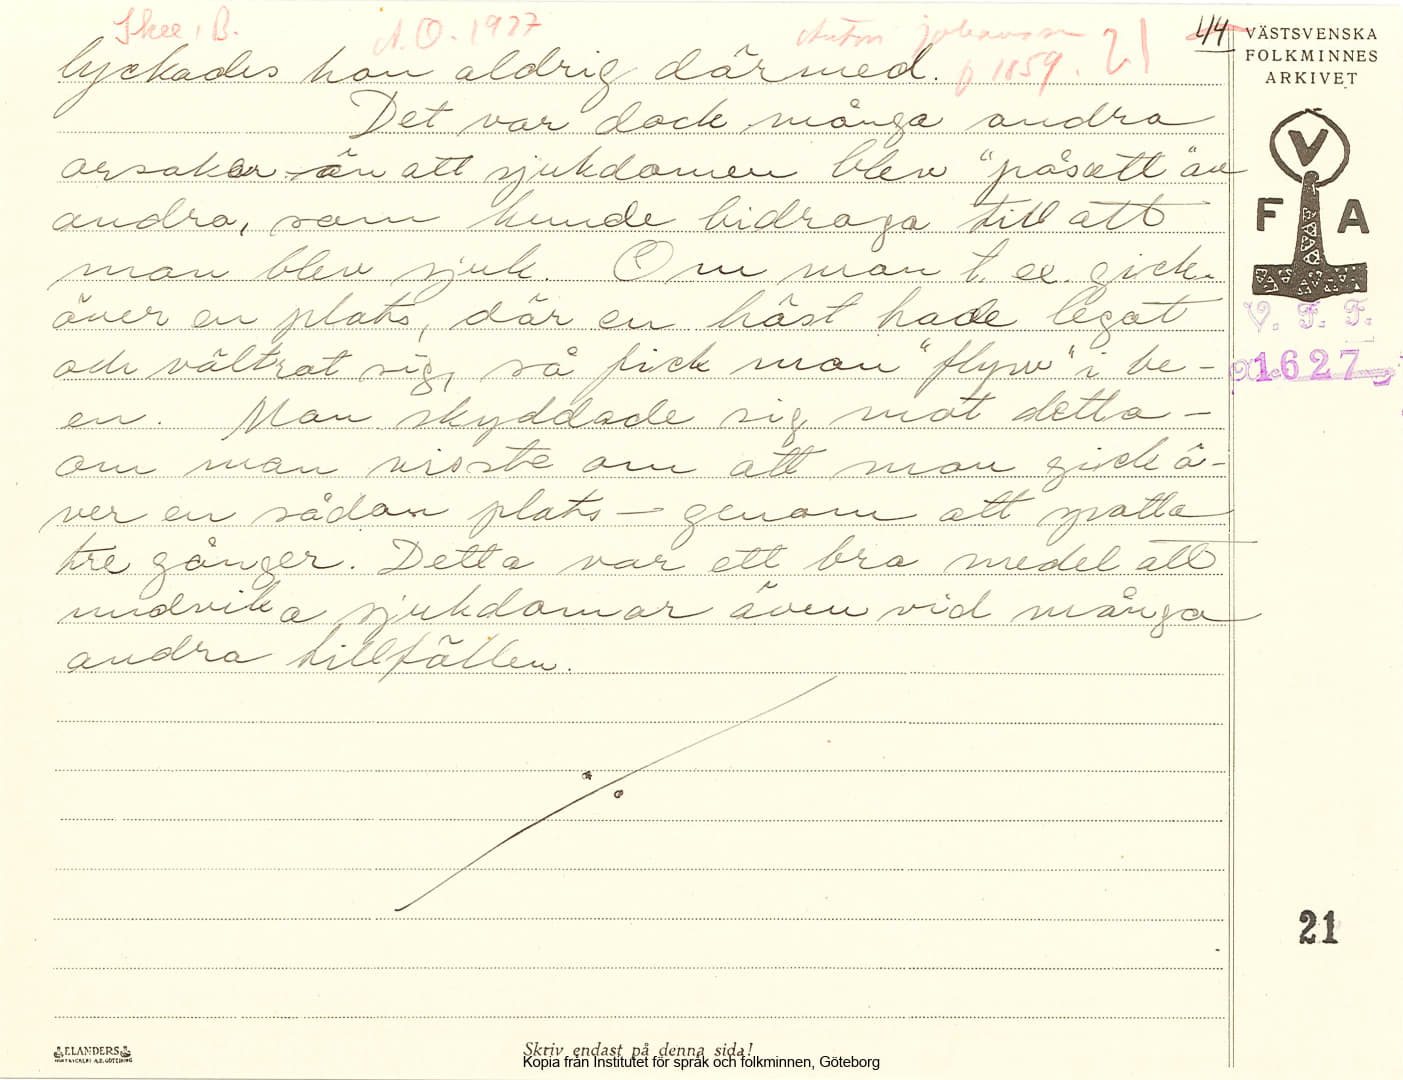 Skee, B.
A. O. 1927
Anton Johansson
f 1859.
21
44
VÄSTSVENSKA
FOLKMINNES
ARKIVET
lyckades han aldrig därmed.
Det var dock många andra
orsaker än att sjukdomen blev "påsatt" av
andra, som kunde bidraga till att
man blev sjuk. Om man t. ex. gick
över en plats, där en häst hade legat
och vältrat sig, så fick man "flyw" i be-
en. Man skyddade sig mot detta -
om man visste om att man gick ö-
ver en sådan plats - genom att spotta
tre gånger. Detta var ett bra medel att
undvika sjukdomar även vid många
andra tillfällen.
V
F A
V. F. F.
1627
21
ELANDERS
Skriv endast på denna sida!
Kopia från Institutet för språk och folkminnen, Göteborg